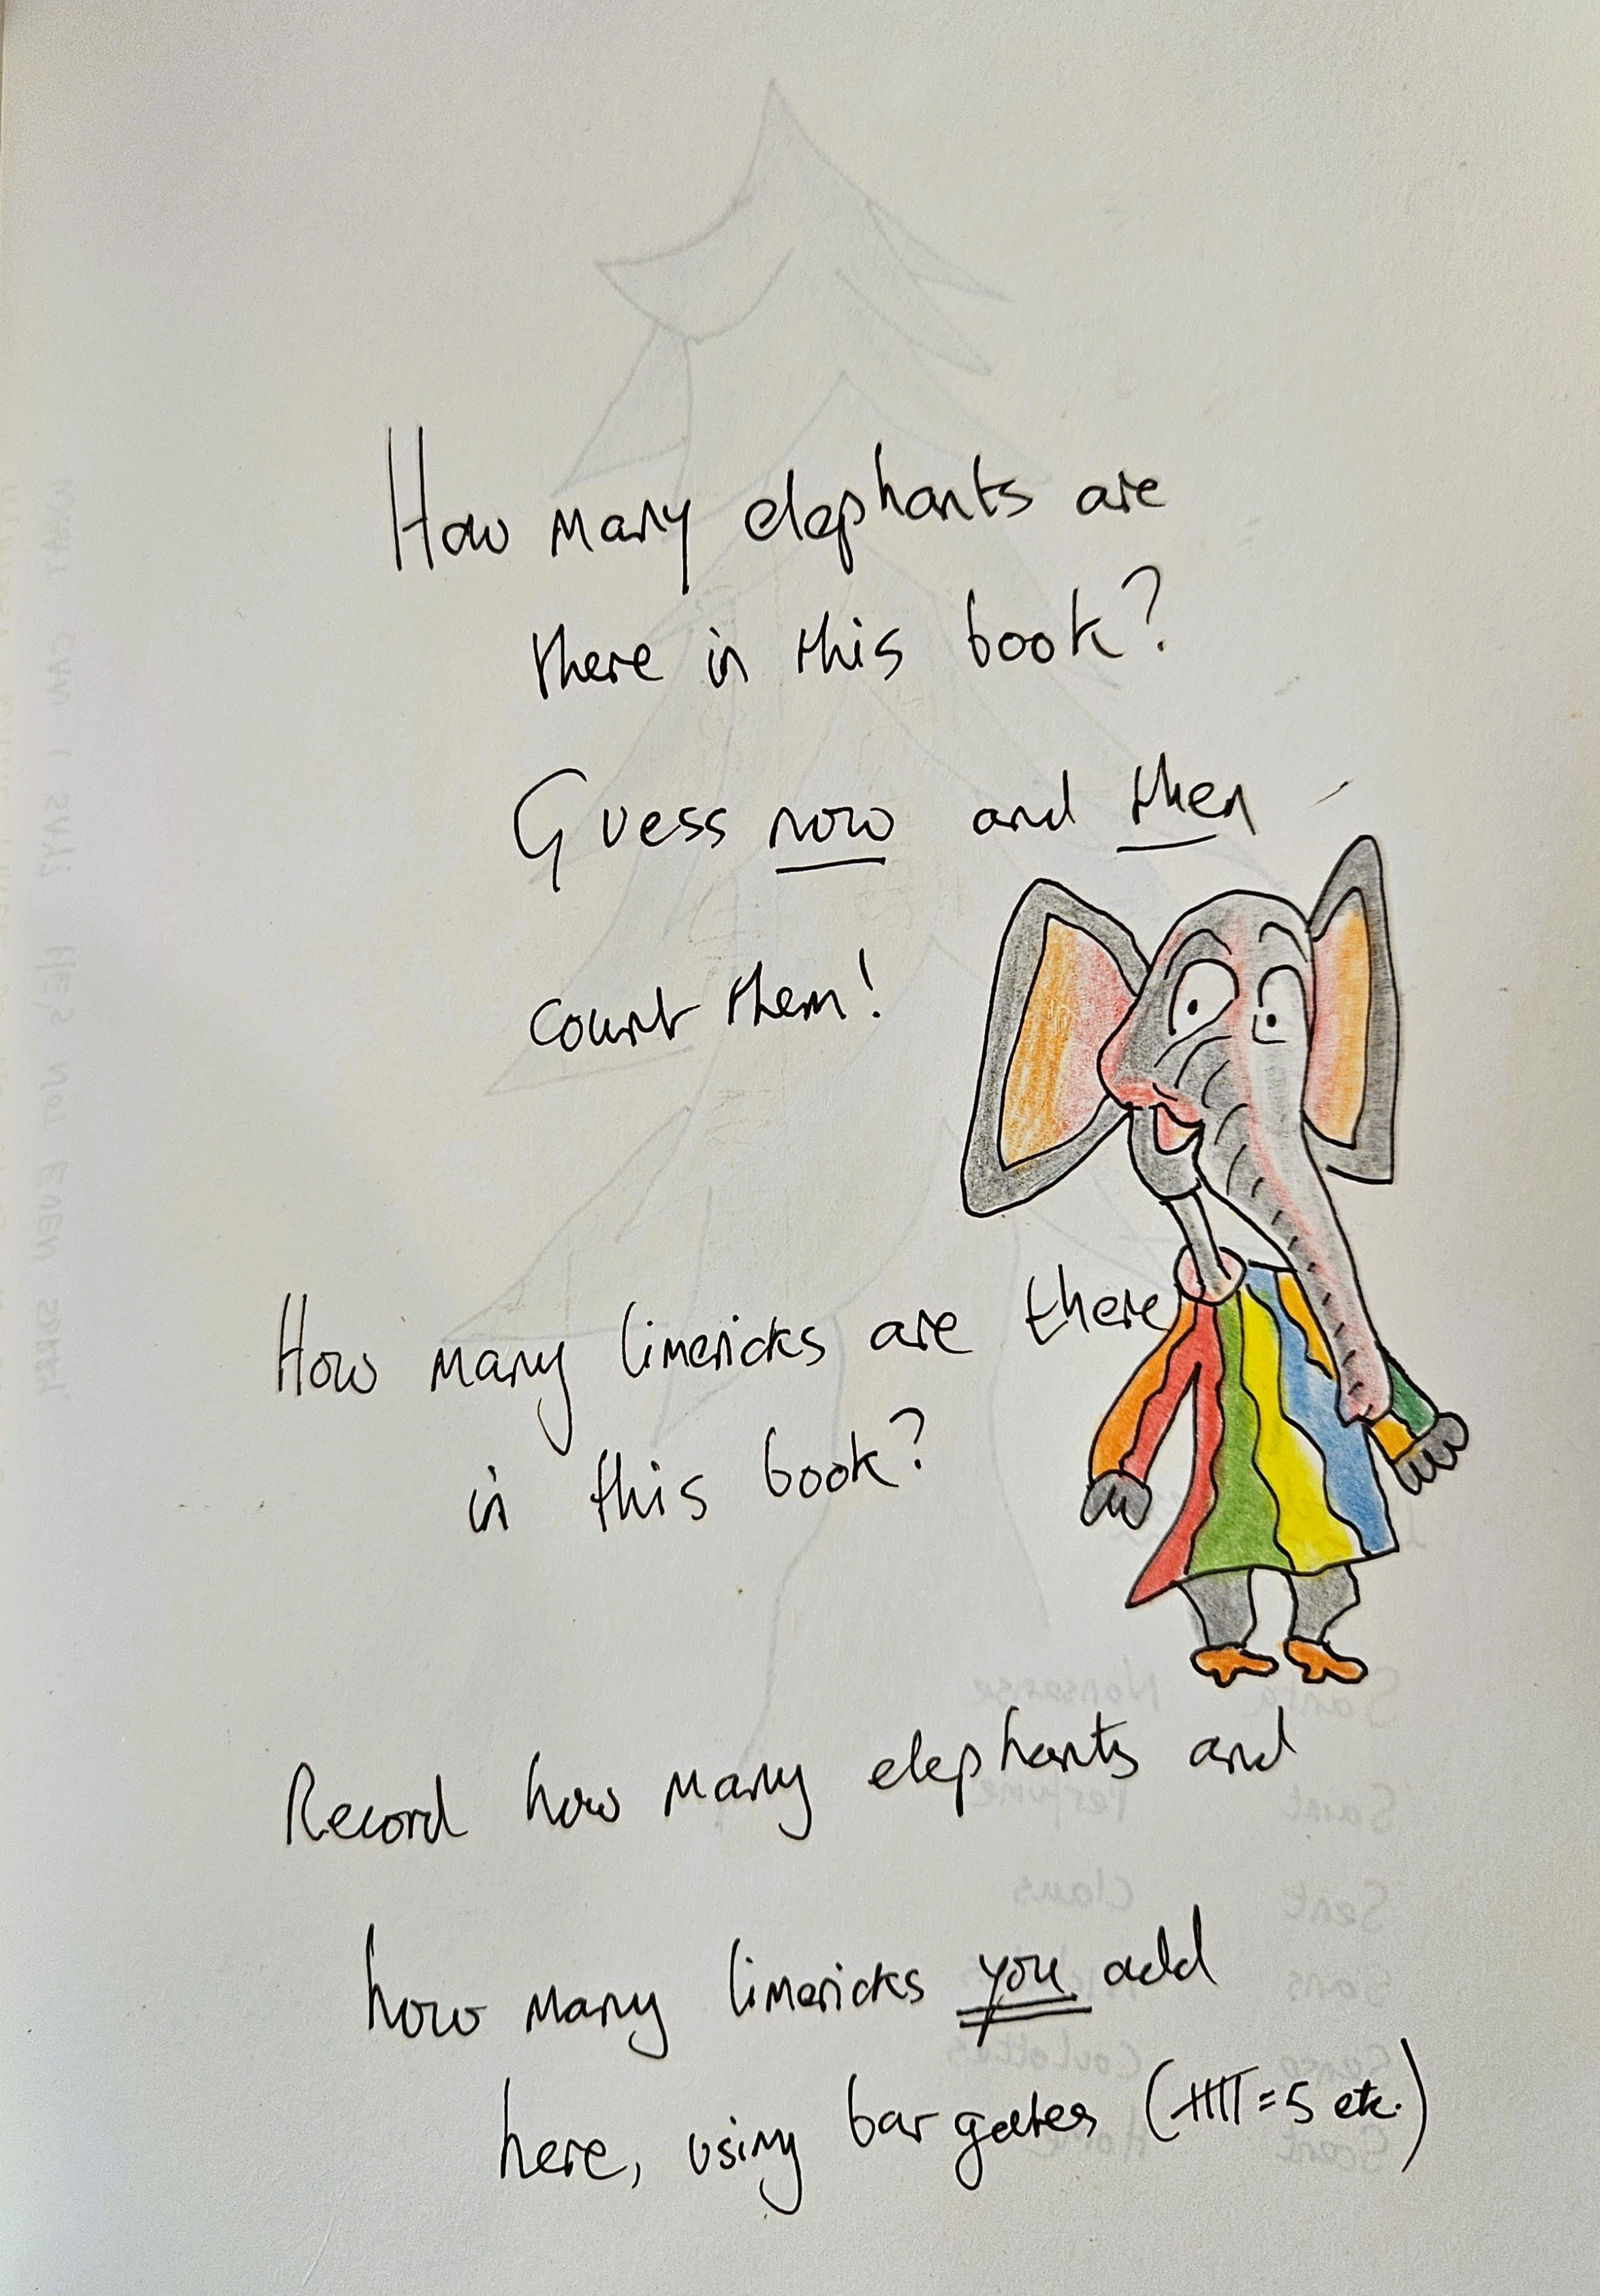 How many elephants are
there in this book?
Guess now and then
count them!
How many limericks are there
in this book?
Record how many elephants and
how many limericks you add
here, using bar gates (卌=5 etc.)
WHAT CAN I SAY? HE'S NOT EVEN SORRY.
Santa Nonsense
Saint Perfume
Sent Claus
Sans
Sense Coulottes
Scent